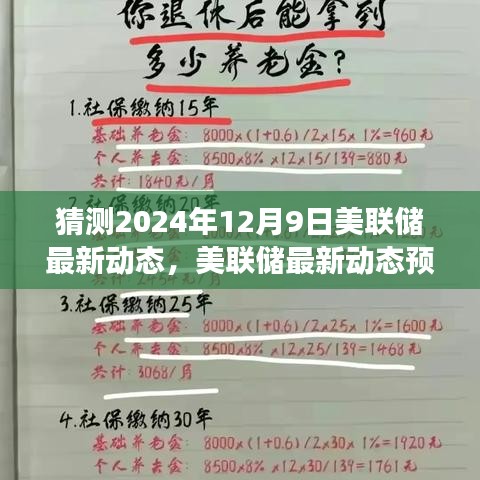 你退休后能拿到
多少养老金?
1.社保缴纳15年
基础养老金: 8000x(1+0.6)/2x15x 1%=960元
个人养老金: 8500x8% x12x15/139=880元
共计: 1840元/月
猜测2024年12月9日美联储
最新动态,美联储最新动态预
3.社保缴纳25年
基础养老金: 8000x(1+0.6)/2x25x 1%=1600元
个人养老金: 8500x8% x12x25/139=1468元
共计: 3068/月
4.社保缴纳30年
基础养老金: 8000x(1+0.6)/2x30x 1%=1920元
个人养老金: 8500x8% x12x30/139=1761元